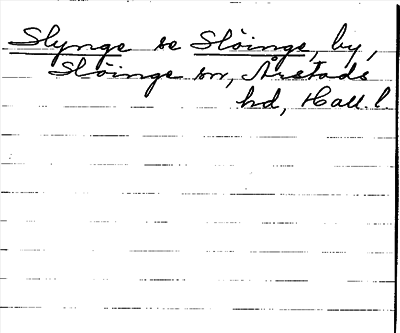 Slynge se Slöinge, by,
Slöinge sn, Årstads
hd, Hall. l.